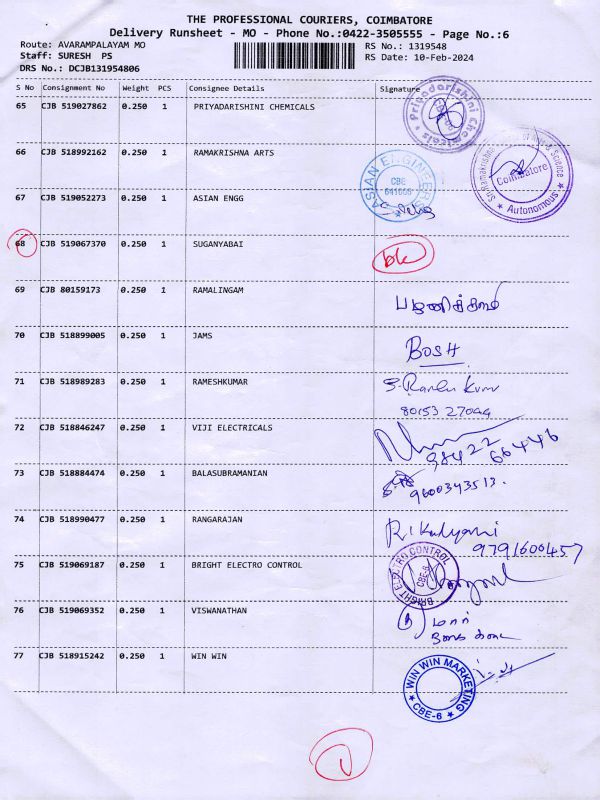 THE PROFESSIONAL COURIERS, COIMBATORE
Delivery Runsheet - MO - Phone No.:0422-3505555 - Page No.:6
Route: AVARAMPALAYAM MO
RS No.: 1319548
Staff: SURESH PS
RS Date: 10-Feb-2024
DRS No.: DCJB131954806
S No Consignment No Weight PCS Consignee Details Signature
65 CJB 519027862 0.250 1 PRIYADARISHINI CHEMICALS
Priyadarishini Chemicals
66 CJB 518992162 0.250 1 RAMAKRISHNA ARTS
Coimbatore
Autonomous
67 CJB 519052273 0.250 1 ASIAN ENGG
ASIAN ENGINEERS
CBE
641006
68 CJB 519067370 0.250 1 SUGANYABAI
69 CJB 80159173 0.250 1 RAMALINGAM
70 CJB 518899005 0.250 1 JAMS
BOSH
71 CJB 518989283 0.250 1 RAMESHKUMAR
80153 27044
72 CJB 518846247 0.250 1 VIJI ELECTRICALS
98422 66446
73 CJB 518884474 0.250 1 BALASUBRAMANIAN
9600343513.
74 CJB 518990477 0.250 1 RANGARAJAN
R. Kalyani
9791600457
75 CJB 519069187 0.250 1 BRIGHT ELECTRO CONTROL
BRIGHT ELECTRO CONTROL
CBE-6
76 CJB 519069352 0.250 1 VISWANATHAN
77 CJB 518915242 0.250 1 WIN WIN
WIN WIN MARKETING
CBE-6